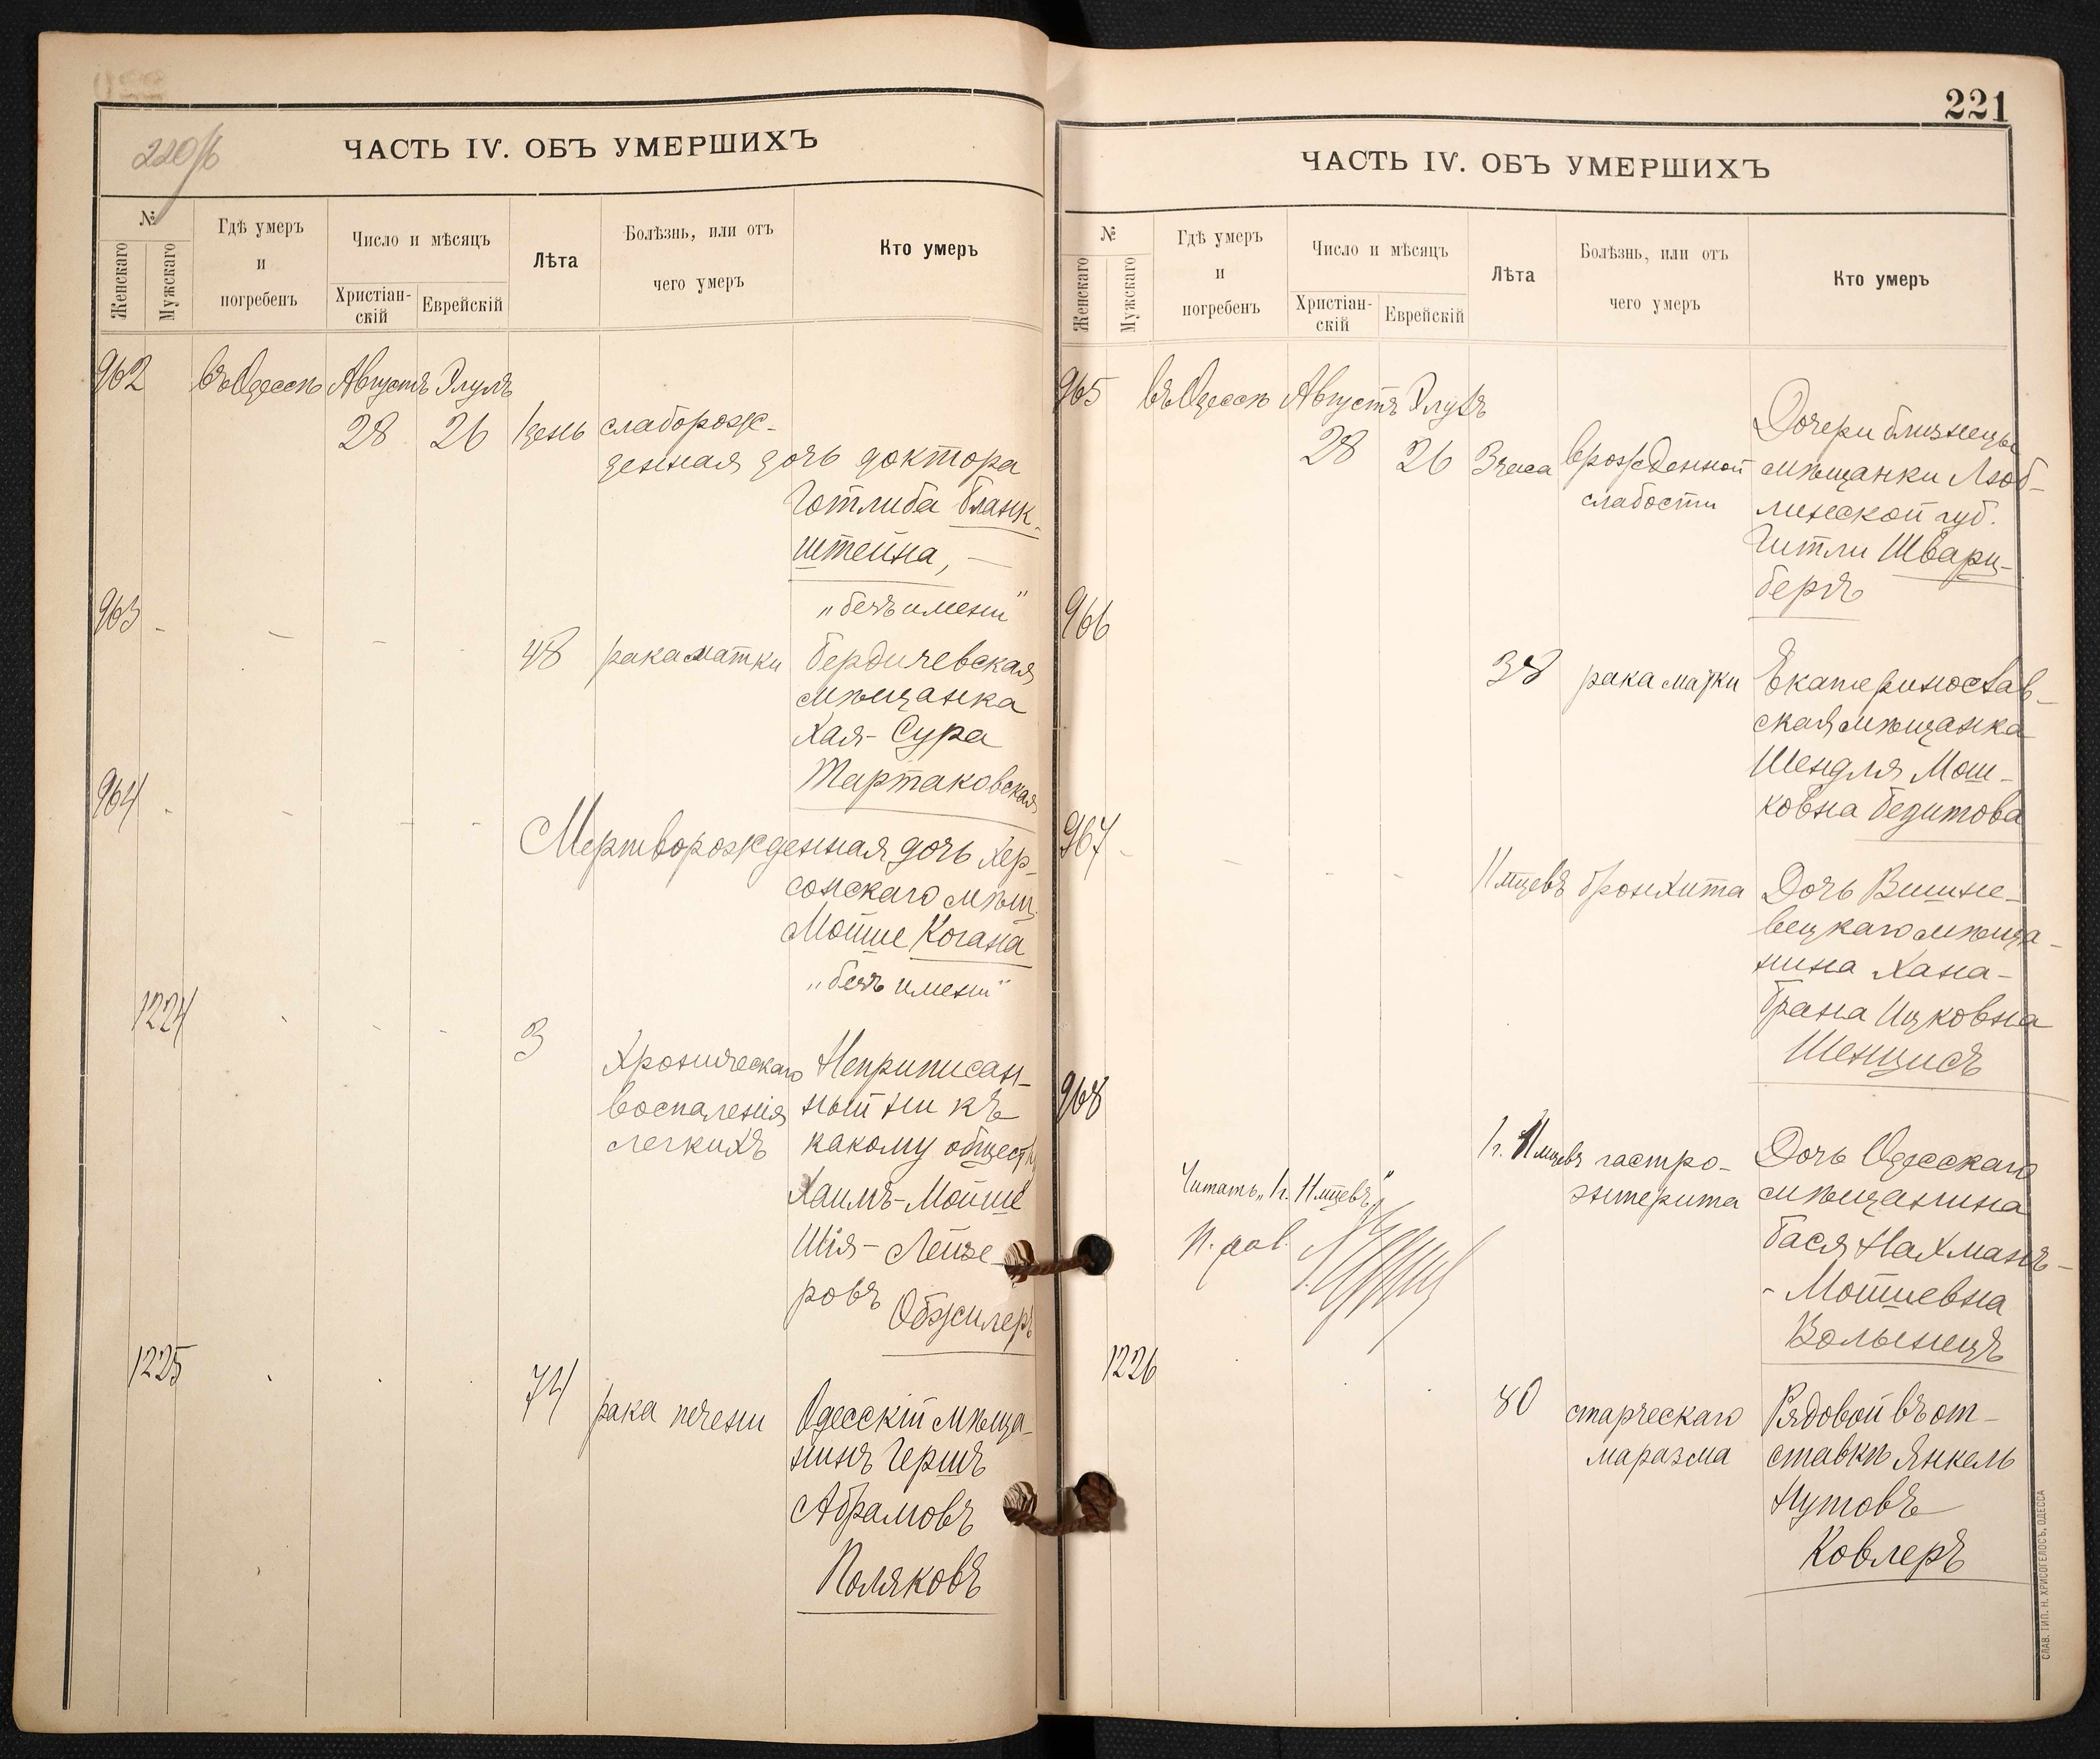 220/б
ЧАСТЬ IV. ОБЪ УМЕРШИХЪ
№
Женскаго
Мужскаго
Гдѣ умеръ
и
погребенъ
Число и мѣсяцъ
Христіан-
скій
Еврейскій
Лѣта
Болѣзнь, или отъ
чего умеръ
Кто умеръ
962 въ Одессѣ Августъ Элулъ
28 26 1 день слаборож-
денная дочь доктора
Готлиба Бланк-
штейна, —
„безъ имени"
963
48 рака матки Бердичевская
мѣщанка
Хая-Сура
Тартаковская
964
Мертворожденная дочь Хер-
сонскаго мѣщ.
Мойше Когана
„безъ имени"
1224
3 Хроническаго Неприписан-
воспаленія ный ни къ
легкихъ какому общест
Хаимъ-Мойше
Шія-Лейзе-
ровъ
Обжилеръ
1225
74 рака печени Одесскій мѣща-
нинъ Гершъ
Абрамовъ
Поляковъ
221
ЧАСТЬ IV. ОБЪ УМЕРШИХЪ
№
Женскаго
Мужскаго
Гдѣ умеръ
и
погребенъ
Число и мѣсяцъ
Христіан-
скій
Еврейскій
Лѣта
Болѣзнь, или отъ
чего умеръ
Кто умеръ
965 въ Одессѣ Августъ Элулъ
28 26 3 часа врожденной
слабости
Дочери близнецы
мѣщанки Люб-
линской губ.
Гитли Шварц-
бергъ
966
38 рака матки Екатеринослав-
ская мѣщанка
Шендля Мош-
ковна Бедитова
967
11 мцевъ бронхита Дочь Вишне-
вецкаго мѣща-
нина Хана-
Брана Ицковна
Шенцисъ
968
1 г. 11 мцевъ гастро-
энтерита
Дочь Одесскаго
мѣщанина
Бася Нахманъ-
-Мойшевна
Волынецъ
Читать „1 г. 11 мцевъ"
1226
80 старческаго
маразма
Рядовой въ от-
ставкѣ Янкель
Нутовъ
Ковлеръ
СЛАВ. ТИП. Н. ХРИСОГЕЛОСЪ, ОДЕССА